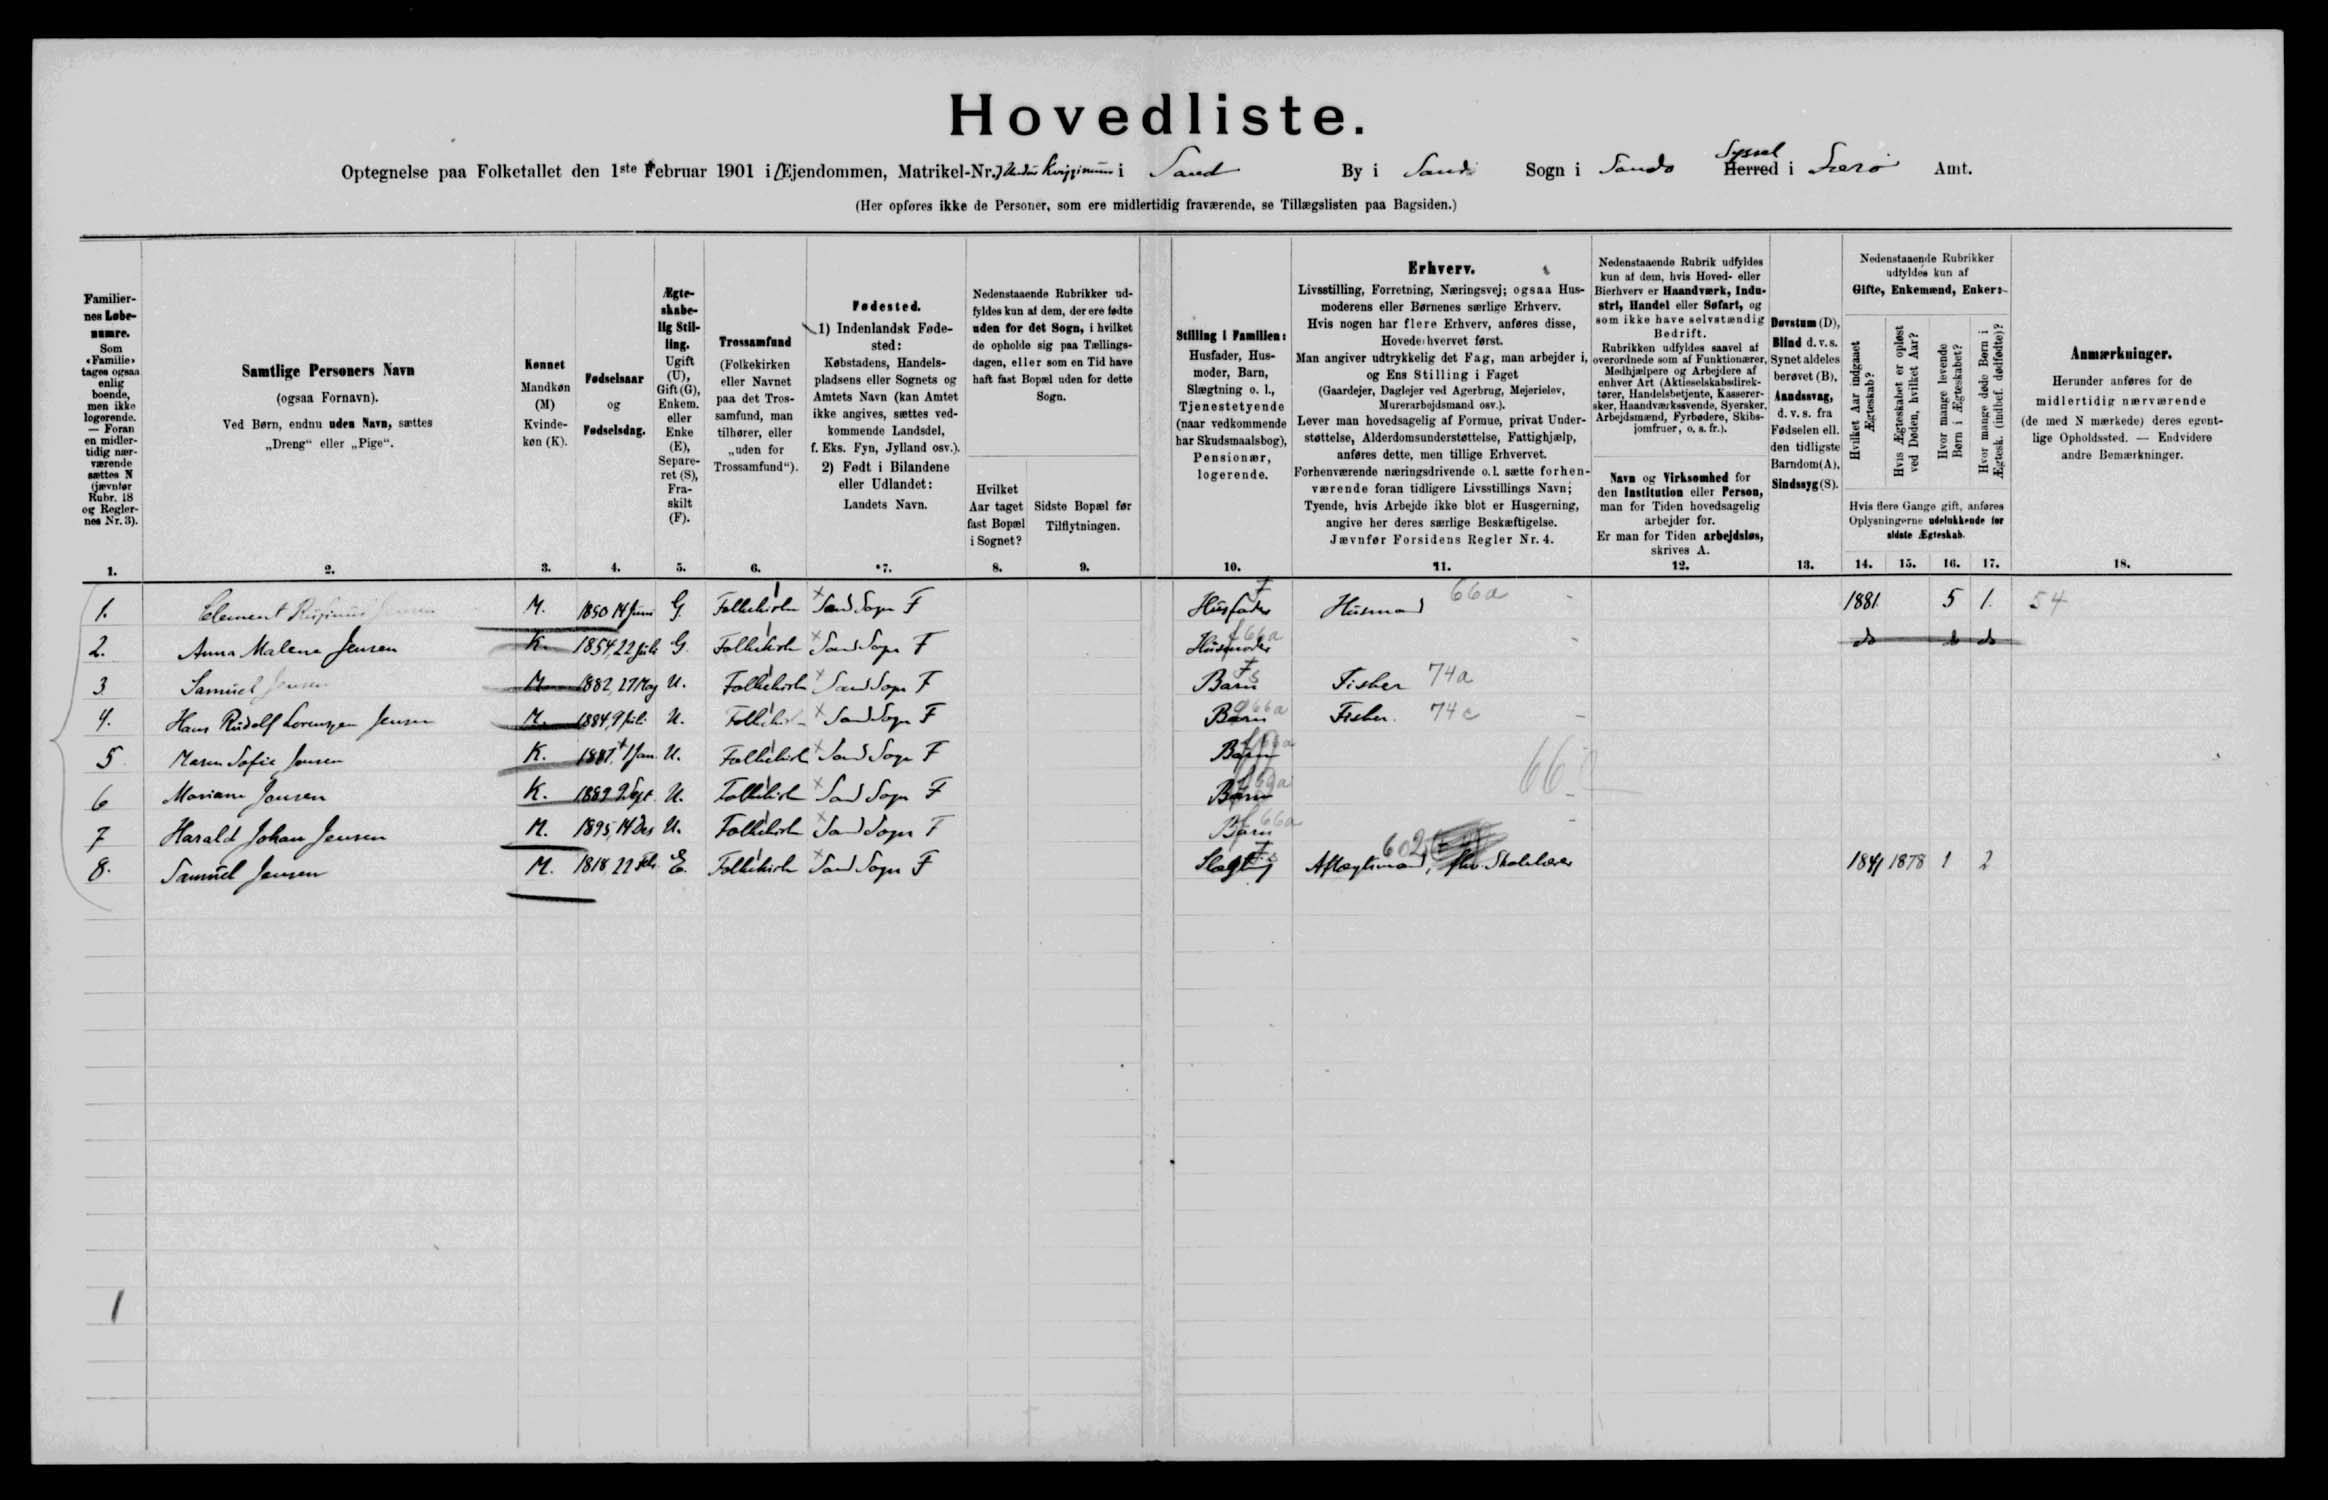 Hovedliste.
Optegnelse paa Folketallet den 1ste Februar 1901 i [Ejendommen, Matrikel-Nr.] i Sand By i Sands Sogn i Sandø Syssel Herred i Færø Amt.
(Her opføres ikke de Personer, som ere midlertidig fraværende, se Tillægslisten paa Bagsiden.)
Familiernes Løbenumre.
Som «Familie» tages ogsaa enlig boende, men ikke logerende. — Foran en midlertidig nærværende sættes N (jævnfør Rubr. 18 og Reglernes Nr. 3).
1.
Samtlige Personers Navn
(ogsaa Fornavn).
Ved Børn, endnu uden Navn, sættes
„Dreng“ eller „Pige“.
2.
Kønnet
Mandkøn (M)
Kvindekøn (K).
3.
Fødselsaar
og
Fødselsdag.
4.
Ægteskabelig Stilling.
Ugift (U), Gift (G), Enkem. eller Enke (E), Separeret (S), Fraskilt (F).
5.
Trossamfund
(Folkekirken eller Navnet paa det Trossamfund, man tilhører, eller „uden for Trossamfund“).
6.
Fødested.
1) Indenlandsk Fødested:
Købstadens, Handelspladsens eller Sognets og Amtets Navn (kan Amtet ikke angives, sættes vedkommende Landsdel, f. Eks. Fyn, Jylland osv.).
2) Født i Bilandene eller Udlandet:
Landets Navn.
7.
Nedenstaaende Rubrikker udfyldes kun af dem, der ere fødte uden for det Sogn, i hvilket de opholde sig paa Tællingsdagen, eller som en Tid have haft fast Bopæl uden for dette Sogn.
Hvilket Aar taget fast Bopæl i Sognet?
8.
Sidste Bopæl før Tilflytningen.
9.
Stilling i Familien:
Husfader, Husmoder, Barn, Slægtning o. l., Tjenestetyende (naar vedkommende har Skudsmaalsbog), Pensionær, logerende.
10.
Erhverv.
Livsstilling, Forretning, Næringsvej; ogsaa Husmoderens eller Børnenes særlige Erhverv.
Hvis nogen har flere Erhverv, anføres disse, Hovederhvervet først.
Man angiver udtrykkelig det Fag, man arbejder i, og Ens Stilling i Faget
(Gaardejer, Daglejer ved Agerbrug, Mejerielev, Murerarbejdsmand osv.).
Lever man hovedsagelig af Formue, privat Understøttelse, Alderdomsunderstøttelse, Fattighjælp, anføres dette, men tillige Erhvervet.
Forhenværende næringsdrivende o. l. sætte forhenværende foran tidligere Livsstillings Navn;
Tyende, hvis Arbejde ikke blot er Husgerning, angive her deres særlige Beskæftigelse.
Jævnfør Forsidens Regler Nr. 4.
11.
Nedenstaaende Rubrik udfyldes kun af dem, hvis Hoved- eller Bierhverv er Haandværk, Industri, Handel eller Søfart, og som ikke have selvstændig Bedrift.
Rubrikken udfyldes saavel af overordnede som af Funktionærer, Medhjælpere og Arbejdere af enhver Art (Aktieselskabsdirektører, Handelsbetjente, Kasserersker, Haandværkssvende, Syersker, Arbejdsmænd, Fyrbødere, Skibsjomfruer, o. s. fr.).
Navn og Virksomhed for den Institution eller Person, man for Tiden hovedsagelig arbejder for.
Er man for Tiden arbejdsløs, skrives A.
12.
Døvstum (D), Blind d. v. s. Synet aldeles berøvet (B), Aandssvag, d. v. s. fra Fødselen ell. den tidligste Barndom (A), Sindssyg (S).
13.
Nedenstaaende Rubrikker udfyldes kun af
Gifte, Enkemænd, Enker:
Hvilket Aar indgaaet Ægteskab?
Hvis Ægteskabet er opløst ved Døden, hvilket Aar?
Hvor mange levende Børn i Ægteskabet?
Hvor mange døde Børn i Ægtesk. (indbef. dødfødte)?
Hvis flere Gange gift, anføres Oplysningerne udelukkende for sidste Ægteskab.
14. 15. 16. 17.
Anmærkninger.
Herunder anføres for de midlertidig nærværende (de med N mærkede) deres egentlige Opholdssted. — Endvidere andre Bemærkninger.
18.
1. Clement Jensen M. 1850 14 Juni G. Folkekirken Sand Sogn F Husfader Husmand 66a 1881 5 1. 54
2. Anna Malene Jensen K. 1854, 22 Juli G. Folkekirken Sand Sogn F Husmoder f 66a do do do
3 Samuel Jensen M 1882, 27 Maj U. Folkekirken Sand Sogn F Barn Fisker 74a
4. Hans Rudolf Lorenzen Jensen M. 1884, 9 Juli U. Folkekirken Sand Sogn F Barn 66a Fisker. 74c
5 Maren Sofie Jensen K. 1887, 1 Jan. U. Folkekirken Sand Sogn F Barn
6 Mariane Jensen K. 1889 2 Sept. U. Folkekirken Sand Sogn F Barn 66
7 Harald Johan Jensen M. 1895, 14 Des U. Folkekirken Sand Sogn F Barn f 66a
8. Samuel Jensen M. 1818, 22 Feb. E. Folkekirken Sand Sogn F Slægtng Aftægtsmand, fhv. Skolelærer 602 1841 1878 1 2
1